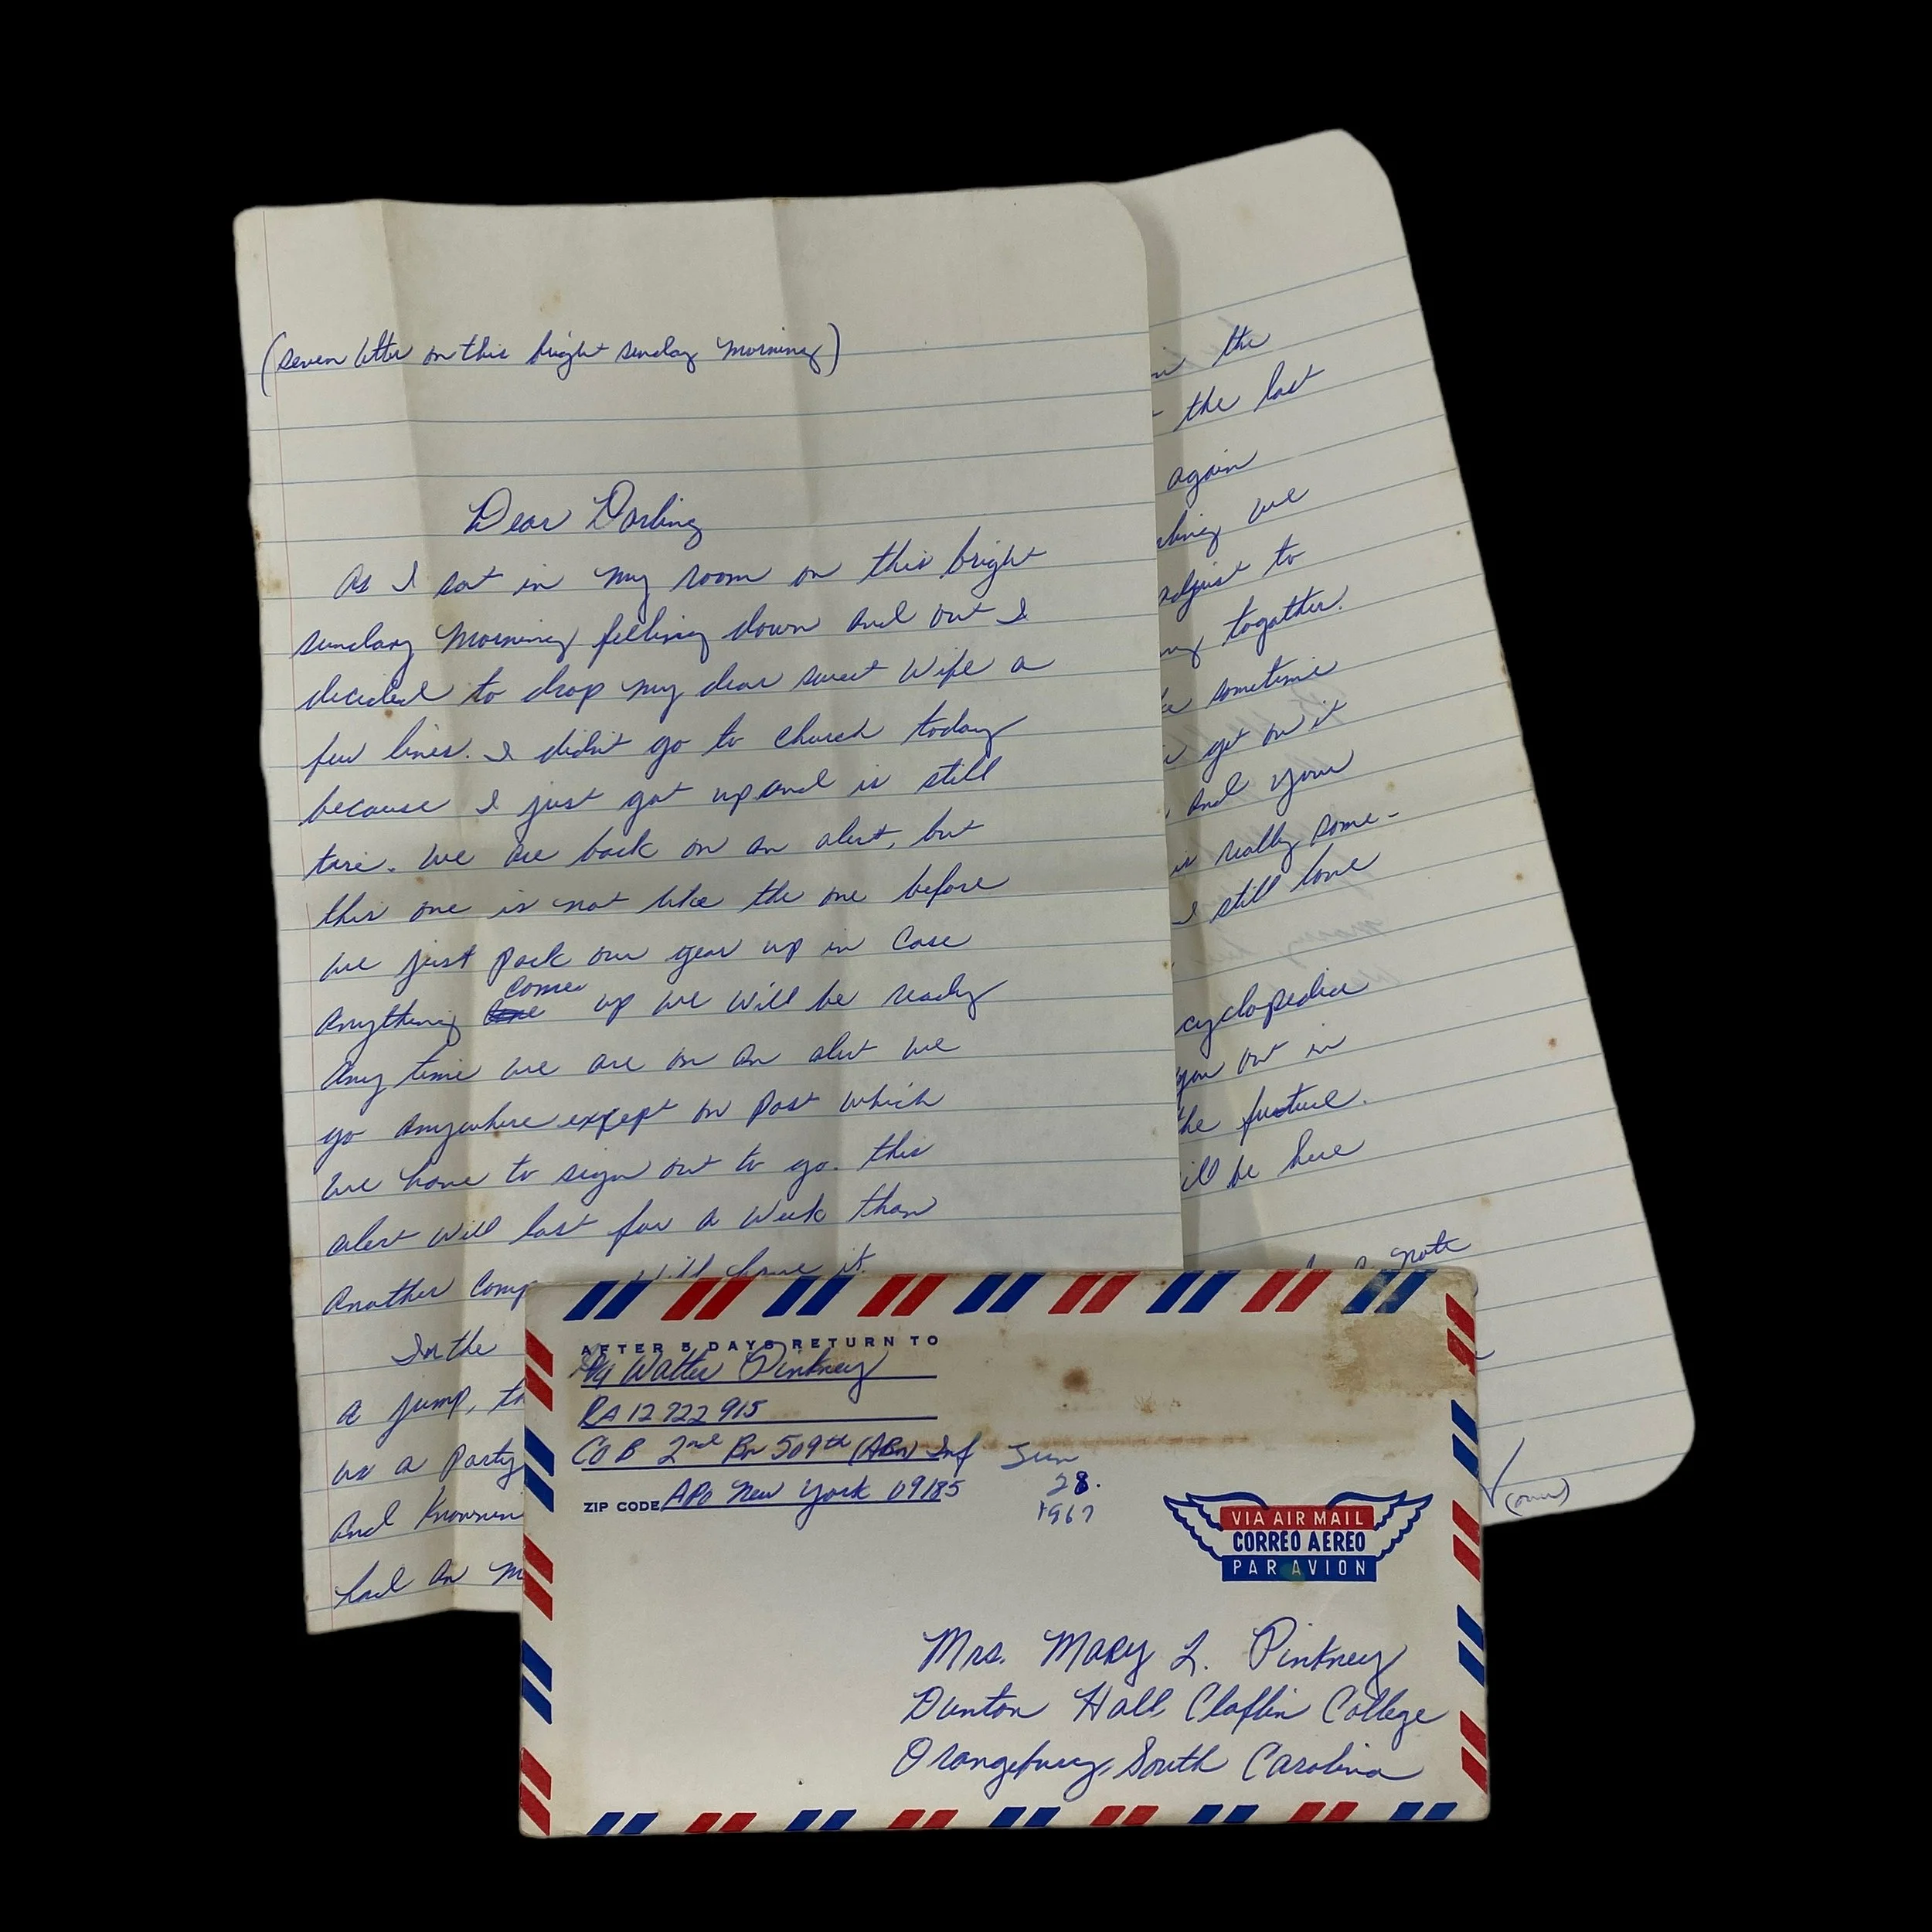 (seven letter on this bright sunday morning)
Dear Darling
As I sat in my room on this bright
sunday morning felling down and out I
decided to drop my dear sweet wife a
few lines. I didn't go to church today
because I just got up and is still
tire. We are back on an alert, but
this one is not like the one before
we just pack our gear up in case
anything comes up we will be ready
Any time we are on an alert we
go anywhere except on post which
we have to sign out to go. this
alert will last for a week than
another comp will have it.
In the
a jump, th
us a party
and knownin
had an m
the
the last
again
we
adjust to
togather.
sometime
get on it
and your
is really some-
I still love
cyclopedia
you out in
the fueture.
ill be here
note
(over)
AFTER 5 DAYS RETURN TO
Walter Pinkney
RA 12 722 915
CO B 2nd Bn 509th (ABn) Inf
ZIP CODE APO New York 09185
28.
1967
VIA AIR MAIL
CORREO AEREO
PAR AVION
Mrs. Mary L. Pinkney
Dunton Hall Claflin College
Orangeburg, South Carolina